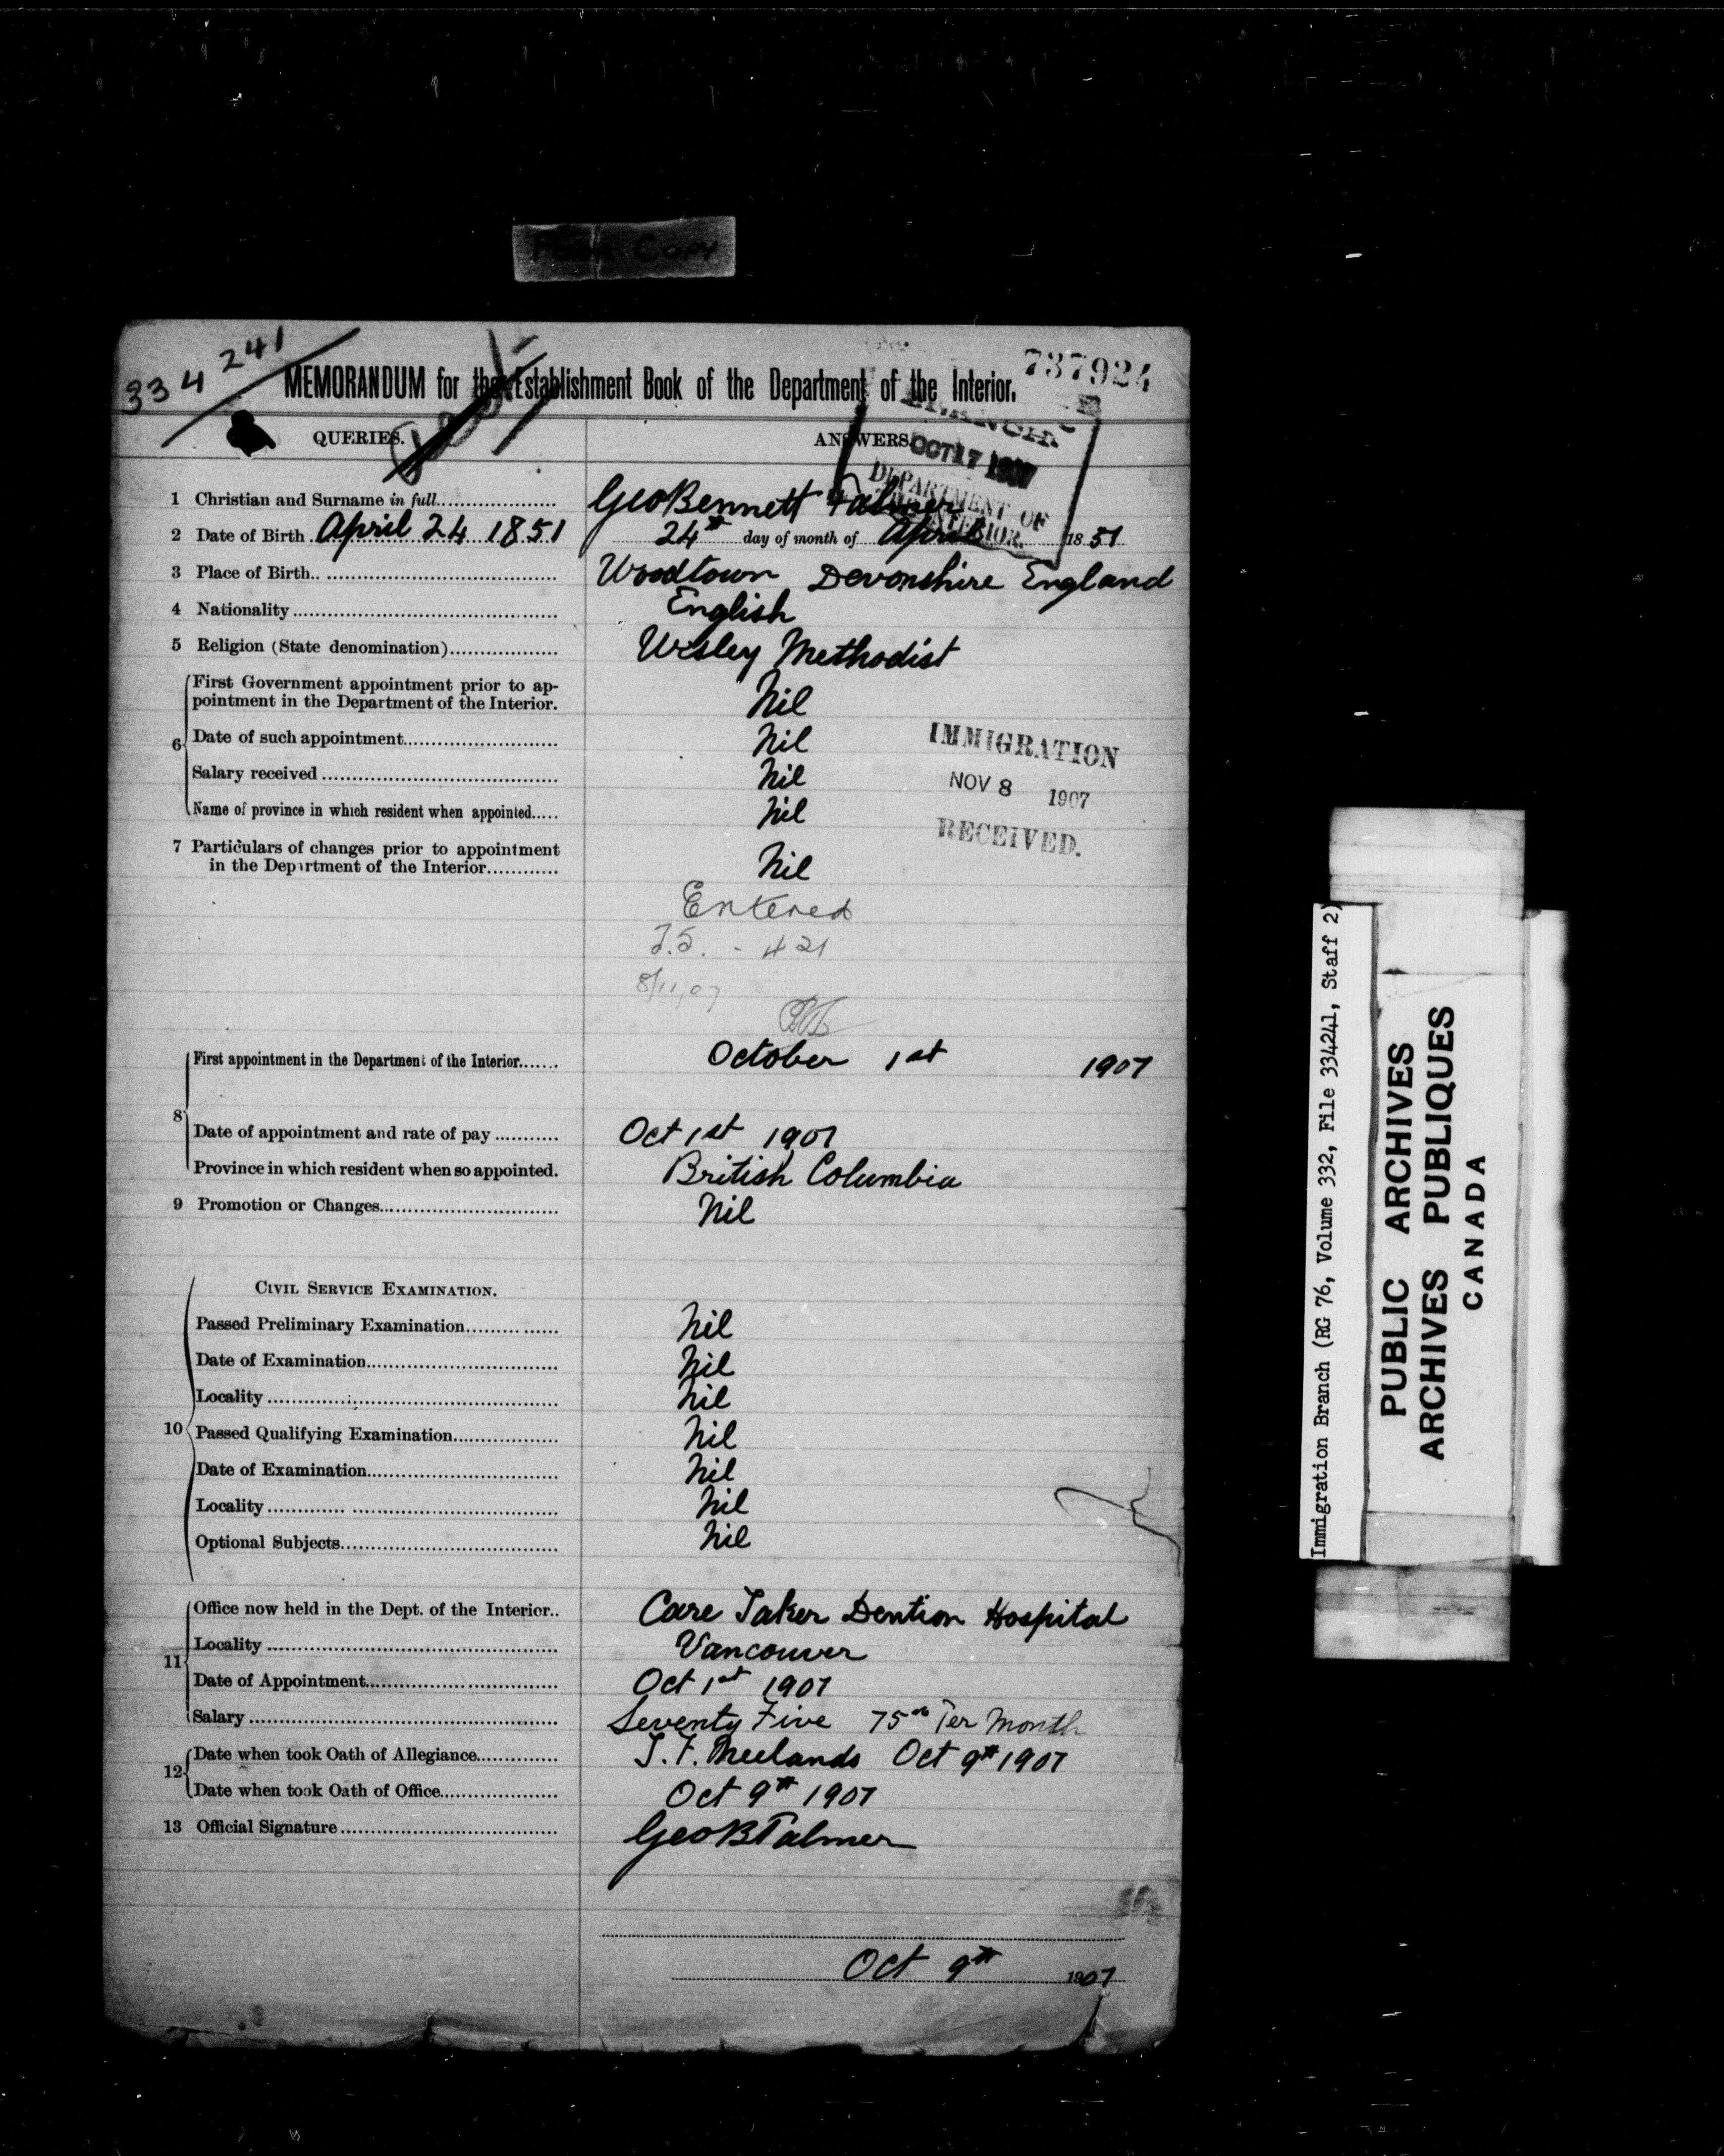 Copy
334241
737924
MEMORANDUM for the Establishment Book of the Department of the Interior.
QUERIES. ANSWERS.
BRANCH
OCT 17 1907
DEPARTMENT OF
THE INTERIOR.
1 Christian and Surname in full Geo Bennett Palmer
2 Date of Birth April 24 1851 24th day of month of April 1851
3 Place of Birth Woodtown Devonshire England
4 Nationality English
5 Religion (State denomination) Wesley Methodist
6 First Government appointment prior to ap-
pointment in the Department of the Interior. Nil
Date of such appointment Nil
Salary received Nil
Name of province in which resident when appointed Nil
IMMIGRATION
NOV 8 1907
RECEIVED.
7 Particulars of changes prior to appointment
in the Department of the Interior Nil
Entered
421
8/11/07
8 First appointment in the Department of the Interior October 1st 1907
Date of appointment and rate of pay Oct 1st 1907
Province in which resident when so appointed. British Columbia
9 Promotion or Changes Nil
CIVIL SERVICE EXAMINATION.
10 Passed Preliminary Examination Nil
Date of Examination Nil
Locality Nil
Passed Qualifying Examination Nil
Date of Examination Nil
Locality Nil
Optional Subjects Nil
11 Office now held in the Dept. of the Interior Care Taker Dention Hospital
Locality Vancouver
Date of Appointment Oct 1st 1907
Salary Seventy Five 75 Per Month
12 Date when took Oath of Allegiance J. F. Oct 9th 1907
Date when took Oath of Office Oct 9th 1907
13 Official Signature Geo B Palmer
Oct 9th 1907
Immigration Branch (RG 76, Volume 332, File 334241, Staff 2)
PUBLIC ARCHIVES
ARCHIVES PUBLIQUES
CANADA